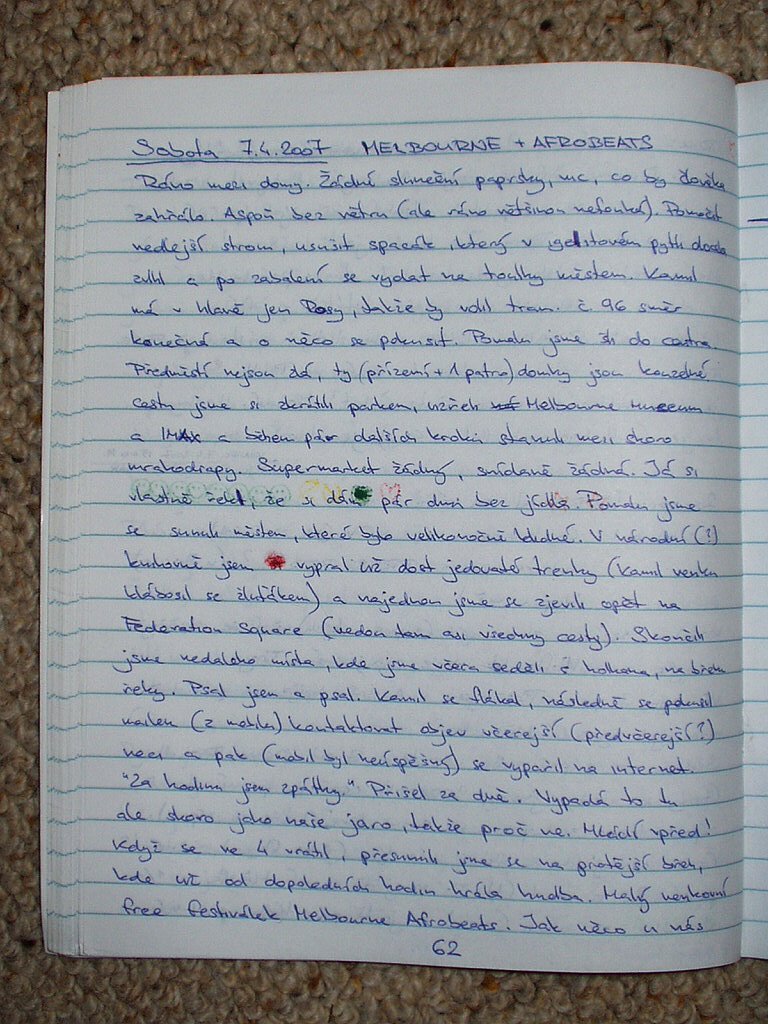 Sobota 7.4.2007 MELBOURNE + AFROBEATS
Ráno mezi domy. Žádné sluneční paprsky, nic, co by člověka
zahřálo. Aspoň bez větru (ale ráno většinou nefouká). Pomočit
nedlejší strom, usušit spacák, který v igelitovém pytli docela
zvlhl a po zabalení se vydat na toulky městem. Kamil
má v hlavě jen Rosy, takže by volil tram. č. 96 směr
konečná a o něco se pokusit. Pomalu jsme šli do centra.
Předměstí nejsou zlá, ty (přízemí + 1 patro) domky jsou kouzelné,
cestu jsme si zkrátili parkem, uzřeli Melbourne museum
a IMAX a během pár dalších kroků stanuli mezi skoro
mrakodrapy. Supermarket žádný, snídaně žádná. Já si
vlastně řekl, že si dám pár dní bez jídla. Pomalu jsme
se sunuli městem, které bylo velikonočně klidné. V národní (?)
knihovně jsem vypral už dost jedovaté trenky (Kamil venku
klábosil se žluťákem) a najednou jsme se zjevili opět na
Federation Square (vedou tam asi všechny cesty). Skončili
jsme nedaleko místa, kde jsme včera seděli s holkama, na břehu
řeky. Psal jsem a psal. Kamil se flákal, následně se pokusil
mailem (z mobilu) kontaktovat objev včerejší (předvčerejší?)
noci a pak (mobil byl neúspěšný) se vypařil na internet.
"Za hodinu jsem zpátky." Přišel za dvě. Vypadá to tu
ale skoro jako naše jaro, takže proč ne. Mládí vpřed!
Když se ve 4 vrátil, přesunuli jsme se na protější břeh,
kde už od dopoledních hodin hrála hudba. Malý venkovní
free festiválek Melbourne Afrobeats. Jak něco u nás
62